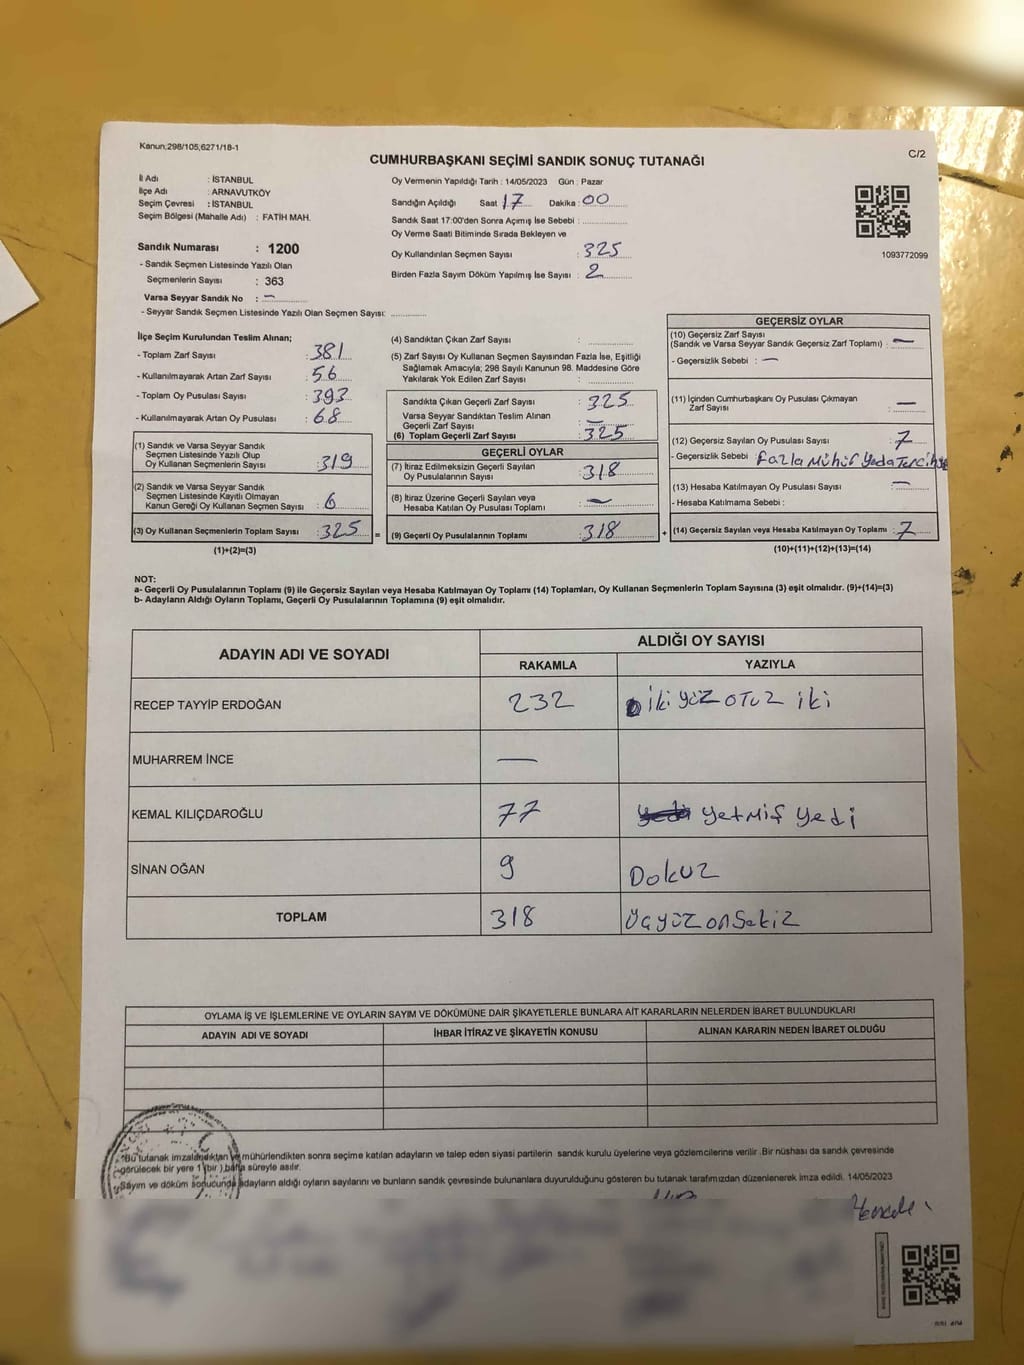 Kanun;298/105,6271/18-1
CUMHURBAŞKANI SEÇİMİ SANDIK SONUÇ TUTANAĞI
C/2
İl Adı : İSTANBUL
İlçe Adı : ARNAVUTKÖY
Seçim Çevresi : İSTANBUL
Seçim Bölgesi (Mahalle Adı) : FATİH MAH.
Sandık Numarası : 1200
- Sandık Seçmen Listesinde Yazılı Olan
Seçmenlerin Sayısı : 363
Varsa Seyyar Sandık No : —
- Seyyar Sandık Seçmen Listesinde Yazılı Olan Seçmen Sayısı:
Oy Vermenin Yapıldığı Tarih : 14/05/2023 Gün : Pazar
Sandığın Açıldığı Saat 17 Dakika : 00
Sandık Saat 17:00'den Sonra Açımış İse Sebebi :
Oy Verme Saati Bitiminde Sırada Bekleyen ve
Oy Kullandırılan Seçmen Sayısı : 325
Birden Fazla Sayım Döküm Yapılmış İse Sayısı : 2
1093772099
İlçe Seçim Kurulundan Teslim Alınan;
- Toplam Zarf Sayısı : 381
- Kullanılmayarak Artan Zarf Sayısı : 56
- Toplam Oy Pusulası Sayısı : 393
- Kullanılmayarak Artan Oy Pusulası : 68
(1) Sandık ve Varsa Seyyar Sandık
Seçmen Listesinde Yazılı Olup
Oy Kullanan Seçmenlerin Sayısı : 319
(2) Sandık ve Varsa Seyyar Sandık
Seçmen Listesinde Kayıtlı Olmayan
Kanun Gereği Oy Kullanan Seçmen Sayısı : 6
(3) Oy Kullanan Seçmenlerin Toplam Sayısı : 325
(1)+(2)=(3)
(4) Sandıktan Çıkan Zarf Sayısı :
(5) Zarf Sayısı Oy Kullanan Seçmen Sayısından Fazla İse, Eşitliği
Sağlamak Amacıyla; 298 Sayılı Kanunun 98. Maddesine Göre
Yakılarak Yok Edilen Zarf Sayısı :
Sandıkta Çıkan Geçerli Zarf Sayısı : 325
Varsa Seyyar Sandıktan Teslim Alınan
Geçerli Zarf Sayısı : —
(6) Toplam Geçerli Zarf Sayısı : 325
GEÇERLİ OYLAR
(7) İtiraz Edilmeksizin Geçerli Sayılan
Oy Pusulalarının Sayısı : 318
(8) İtiraz Üzerine Geçerli Sayılan veya
Hesaba Katılan Oy Pusulası Toplamı : —
= (9) Geçerli Oy Pusulalarının Toplamı : 318
GEÇERSİZ OYLAR
(10) Geçersiz Zarf Sayısı
(Sandık ve Varsa Seyyar Sandık Geçersiz Zarf Toplamı) : —
- Geçersizlik Sebebi : —
(11) İçinden Cumhurbaşkanı Oy Pusulası Çıkmayan
Zarf Sayısı : —
(12) Geçersiz Sayılan Oy Pusulası Sayısı : 7
- Geçersizlik Sebebi Fazla Mühür Yada
(13) Hesaba Katılmayan Oy Pusulası Sayısı : —
- Hesaba Katılmama Sebebi :
+ (14) Geçersiz Sayılan veya Hesaba Katılmayan Oy Toplamı : 7
(10)+(11)+(12)+(13)=(14)
NOT:
a- Geçerli Oy Pusulalarının Toplamı (9) ile Geçersiz Sayılan veya Hesaba Katılmayan Oy Toplamı (14) Toplamları, Oy Kullanan Seçmenlerin Toplam Sayısına (3) eşit olmalıdır. (9)+(14)=(3)
b- Adayların Aldığı Oyların Toplamı, Geçerli Oy Pusulalarının Toplamına (9) eşit olmalıdır.
ADAYIN ADI VE SOYADI
ALDIĞI OY SAYISI
RAKAMLA YAZIYLA
RECEP TAYYİP ERDOĞAN 232 iki yüz otuz iki
MUHARREM İNCE —
KEMAL KILIÇDAROĞLU 77 yetmiş yedi
SİNAN OĞAN 9 Dokuz
TOPLAM 318 Üçyüz onsekiz
OYLAMA İŞ VE İŞLEMLERİNE VE OYLARIN SAYIM VE DÖKÜMÜNE DAİR ŞİKAYETLERLE BUNLARA AİT KARARLARIN NELERDEN İBARET BULUNDUKLARI
ADAYIN ADI VE SOYADI İHBAR İTİRAZ VE ŞİKAYETİN KONUSU ALINAN KARARIN NEDEN İBARET OLDUĞU
Bu tutanak imzalandıktan ve mühürlendikten sonra seçime katılan adayların ve talep eden siyasi partilerin sandık kurulu üyelerine veya gözlemcilerine verilir. Bir nüshası da sandık çevresinde
görülecek bir yere 1 (bir ) hafta süreyle asılır.
Sayım ve döküm sonucunda adayların aldığı oyların sayılarını ve bunların sandık çevresinde bulunanlara duyurulduğunu gösteren bu tutanak tarafımızdan düzenlenerek imza edildi. 14/05/2023